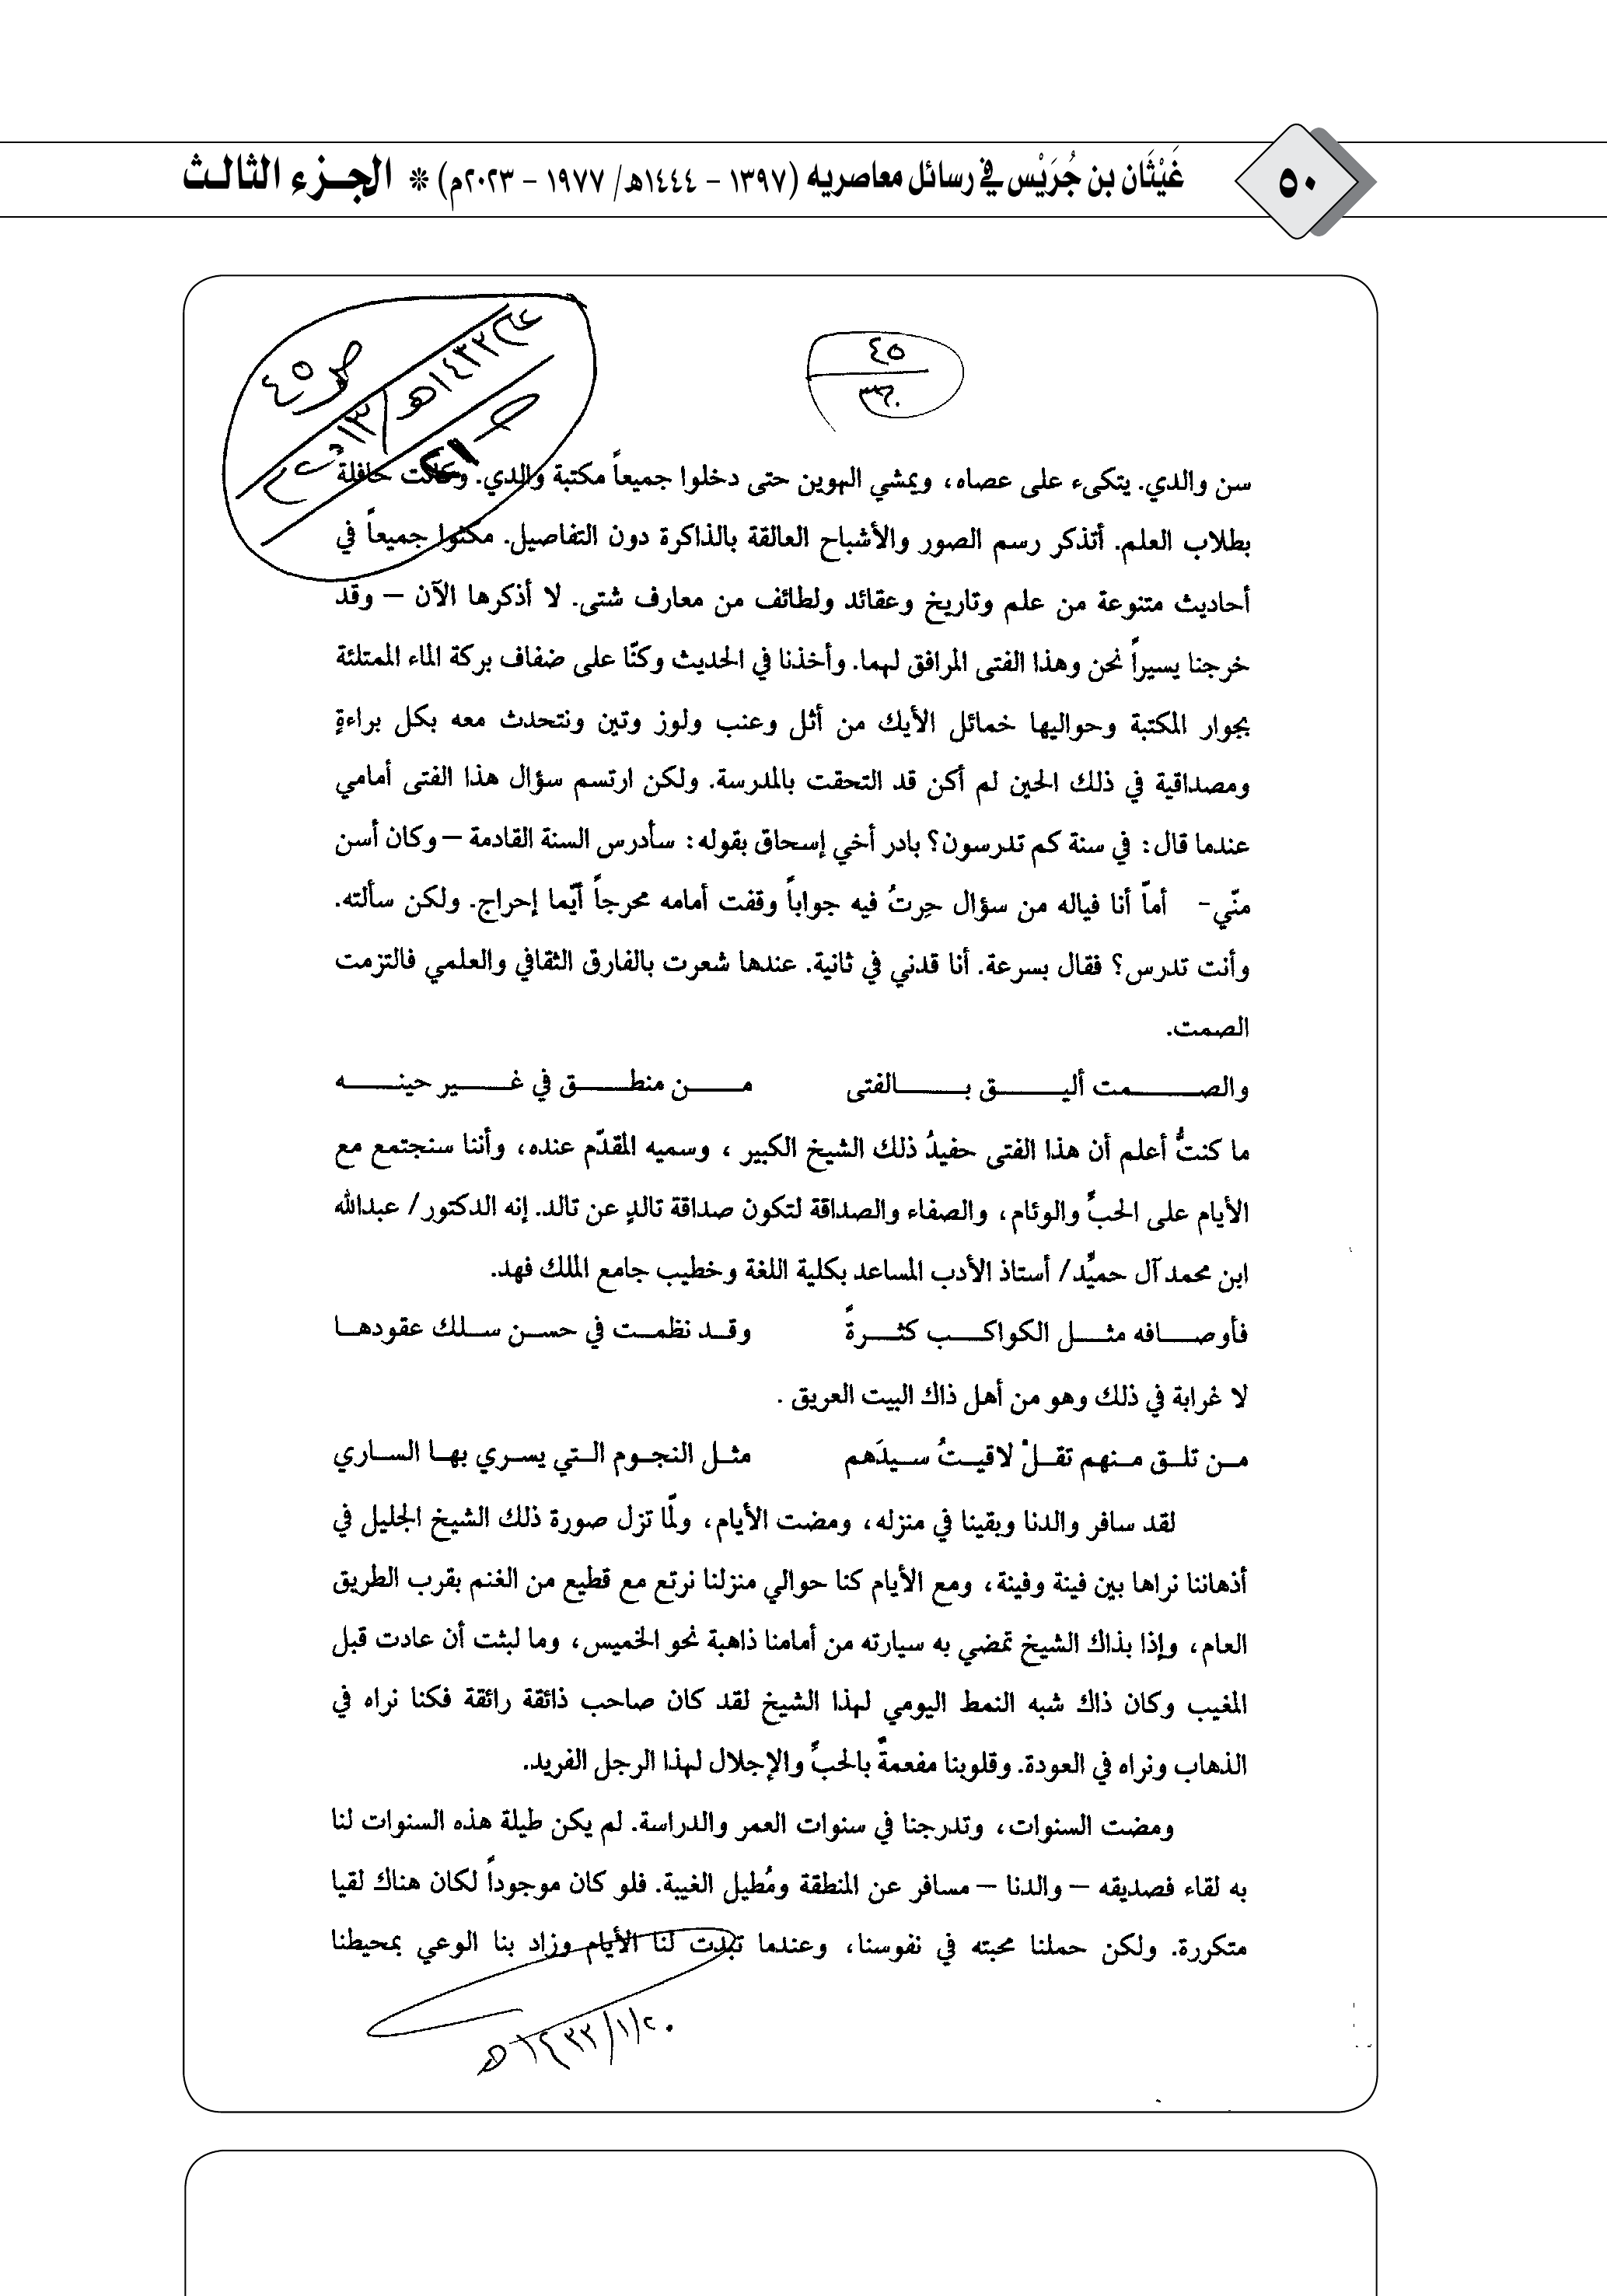 ٥٠
غَيْثَان بن جُرَيْس في رسائل معاصريه (١٣٩٧ - ١٤٤٤هـ/ ١٩٧٧ - ٢٠٢٣م) * الجزء الثالث
٤٥
ص ٤٥
١٤٣٢هـ
سن والدي. يتكىء على عصاه، ويمشي الهوين حتى دخلوا جميعاً مكتبة والدي. وكانت حافلة
بطلاب العلم. أتذكر رسم الصور والأشباح العالقة بالذاكرة دون التفاصيل. مكثوا جميعاً في
أحاديث متنوعة من علم وتاريخ وعقائد ولطائف من معارف شتى. لا أذكرها الآن – وقد
خرجنا يسيراً نحن وهذا الفتى المرافق لهما. وأخذنا في الحديث وكنّا على ضفاف بركة الماء الممتلئة
بجوار المكتبة وحواليها خمائل الأيك من أثل وعنب ولوز وتين ونتحدث معه بكل براءةٍ
ومصداقية في ذلك الحين لم أكن قد التحقت بالمدرسة. ولكن ارتسم سؤال هذا الفتى أمامي
عندما قال: في سنة كم تدرسون؟ بادر أخي إسحاق بقوله: سأدرس السنة القادمة – وكان أسن
منّي- أمّا أنا فياله من سؤال حِرتُ فيه جواباً وقفت أمامه محرجاً أيّما إحراج. ولكن سألته.
وأنت تدرس؟ فقال بسرعة. أنا قدني في ثانية. عندها شعرت بالفارق الثقافي والعلمي فالتزمت
الصمت.
والصـــــمت أليـــــق بـــــالفتى مـــــن منطـــــق في غـــــير حينـــــه
ما كنتُ أعلم أن هذا الفتى حفيدُ ذلك الشيخ الكبير ، وسميه المقدّم عنده، وأننا سنجتمع مع
الأيام على الحبِّ والوئام، والصفاء والصداقة لتكون صداقة تالدٍ عن تالد. إنه الدكتور/ عبدالله
ابن محمد آل حميِّد/ أستاذ الأدب المساعد بكلية اللغة وخطيب جامع الملك فهد.
فأوصـــافه مثـــل الكواكـــب كثـــرةً وقـــد نظمـــت في حســـن ســـلك عقودهـــا
لا غرابة في ذلك وهو من أهل ذاك البيت العريق .
مـن تلـق مـنهم تقـلْ لاقيـتُ سـيدَهم مثـل النجـوم الـتي يسـري بهـا السـاري
لقد سافر والدنا وبقينا في منزله، ومضت الأيام، ولمّا تزل صورة ذلك الشيخ الجليل في
أذهاننا نراها بين فينة وفينة، ومع الأيام كنا حوالي منزلنا نرتع مع قطيع من الغنم بقرب الطريق
العام، وإذا بذاك الشيخ تمضي به سيارته من أمامنا ذاهبة نحو الخميس، وما لبثت أن عادت قبل
المغيب وكان ذاك شبه النمط اليومي لهذا الشيخ لقد كان صاحب ذائقة رائقة فكنا نراه في
الذهاب ونراه في العودة. وقلوبنا مفعمةٌ بالحبِّ والإجلال لهذا الرجل الفريد.
ومضت السنوات، وتدرجنا في سنوات العمر والدراسة. لم يكن طيلة هذه السنوات لنا
به لقاء فصديقه – والدنا – مسافر عن المنطقة ومُطيل الغيبة. فلو كان موجوداً لكان هناك لقيا
متكررة. ولكن حملنا محبته في نفوسنا، وعندما تبدت لنا الأيام وزاد بنا الوعي بمحيطنا
٢٠/١/١٤٣٣هـ